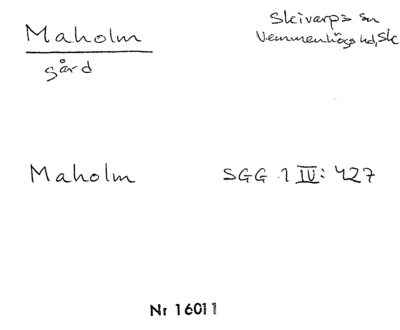 Maholm
gård
Skivarps sn
Vemmenhögs hd, Sk
Maholm SGG 1 IV: 427
Nr 16011